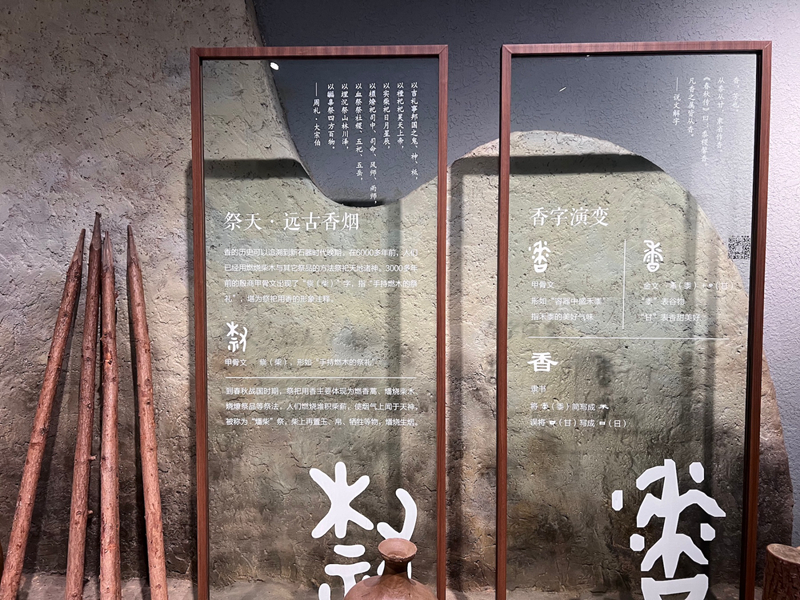 以吉礼事邦国之鬼、神、祇，
以禋祀祀昊天上帝，
以实柴祀日月星辰，
以槱燎祀司中、司命、风师、雨师，
以血祭祭社稷、五祀、五岳，
以埋沉祭山林川泽，
以疈辜祭四方百物。
——周礼·大宗伯
祭天·远古香烟
香的历史可以追溯到新石器时代晚期。在6000多年前，人们
已经用燃烧柴木与其它祭品的方法祭祀天地诸神。3000多年
前的殷商甲骨文出现了“祡（柴）”字，指“手持燃木的祭
礼”，堪为祭祀用香的形象注释。
甲骨文 祡（柴），形如“手持燃木的祭礼”
到春秋战国时期，祭祀用香主要体现为燃香蒿、燔烧柴木、
烧燎祭品等祭法，人们燃烧堆积柴薪，使烟气上闻于天神，
被称为“燔柴”祭，柴上再置玉、帛、牺牲等物，燔烧生烟。
香，芳也。
从黍从甘，
《春秋传》曰：黍稷馨香。
凡香之属皆从香。
——说文解字
香字演变
甲骨文
形如“容器中盛禾黍”
指禾黍的美好气味
金文
“黍”表谷物
“甘”表香甜美好
香
隶书
将（黍）简写成
误将（甘）写成（日）